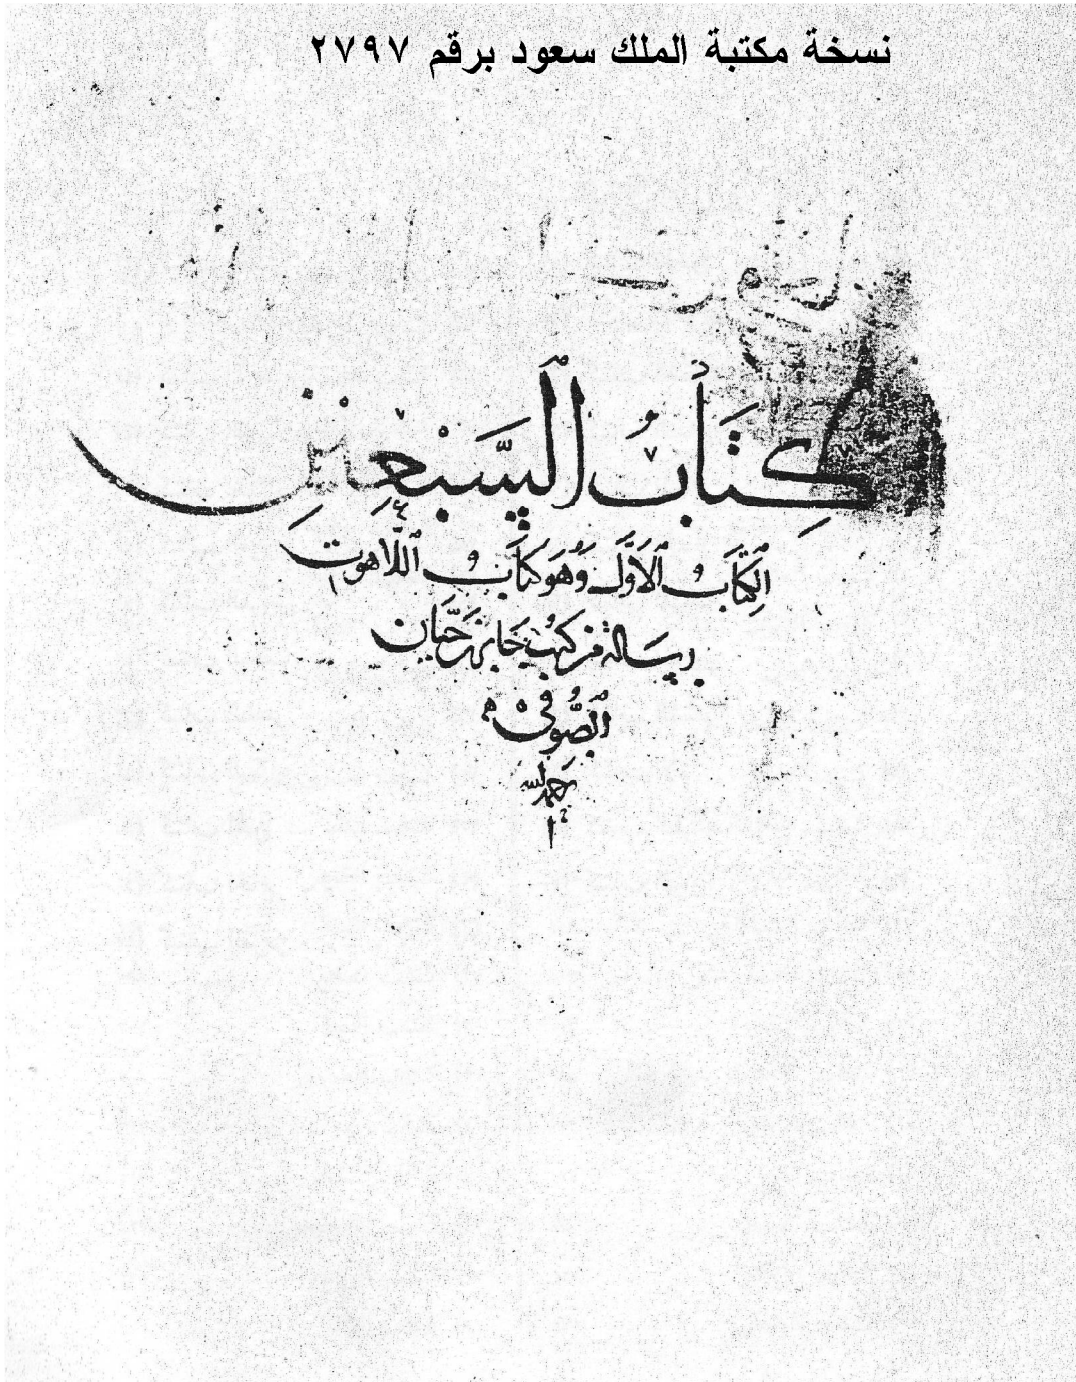 نسخة مكتبة الملك سعود برقم ٢٧٩٧
كِتَابُ السَّبْعِيْنَ
الكِتَابُ الأَوَّلُ وَهُوَ كِتَابُ اللَّاهوتِ
رِسَالة من كتب جَابر بن حَيَّان
الصُّوفيْ